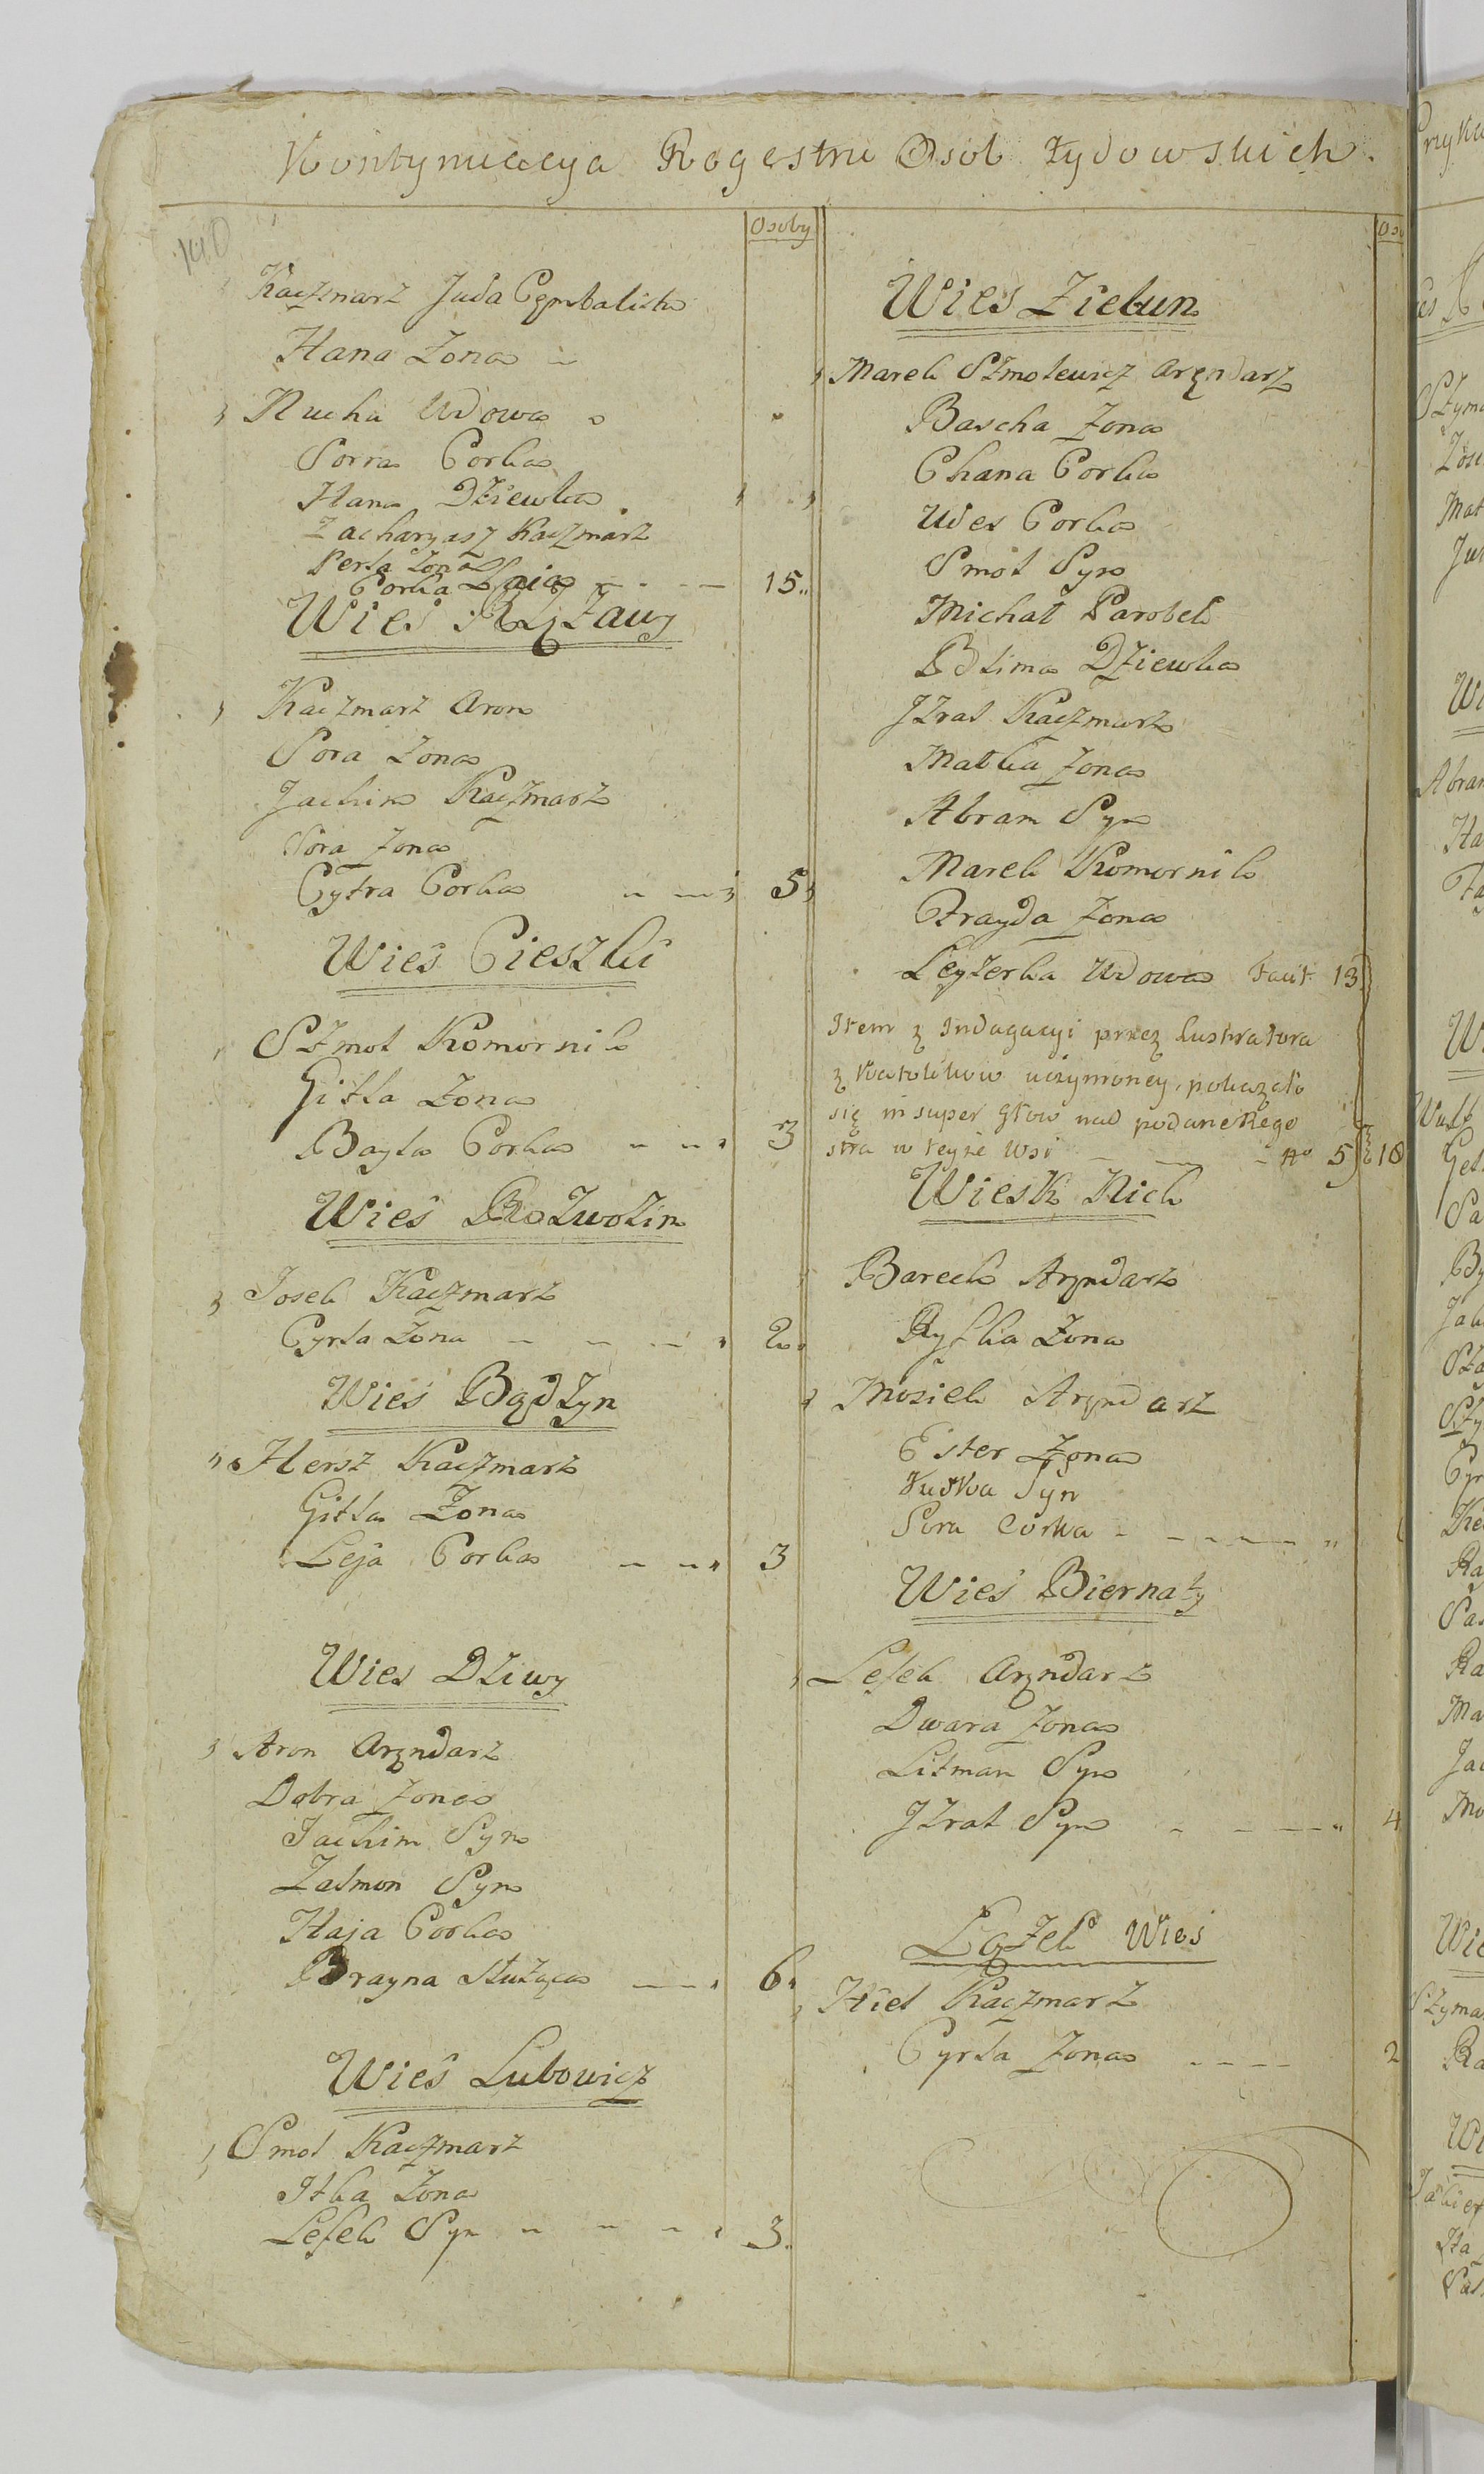 Kontynuacya Rogestru Osob Żydowskich.
140
Osoby
Kaczmarz Juda Cymbalista
Hana Zona
Rucha Wdowa
Sorra Corka
Hana Dziewka
Zacharyasz Kaczmarz
Perla Zona
Corka 15
Wies
Kaczmarz Aron
Sora Zona
Jachim Kaczmarz
Sora Zona
Cytra Corka 5
Wieś Cieszki
Szmol Komornik
Gitla Zona
Bayla Corka 3
Wieś Rozwozin
Josek Kaczmarz
Cyrla Zona 2
Wieś Bądzyn
Hersz Kaczmarz
Gitla Zona
Leja Corka 3
Wies Dziwy
Aron Arędarz
Dobra Zona
Jachim Syn
Zalmon Syn
Haja Corka
Brayna Służąca 6
Wieś Lubowicz
Smol Kaczmarz
Itka Zona
Lesek Syn 3
Wies Zielun
Marek Szmolewicz Arędarz
Bascha Zona
Chana Corka
Udes Corka
Smol Syn
Michal Parobek
Blima Dziewka
Jzral Kaczmarz
Matka Zona
Abram Syn
Marek Komornik
Frayda Zona
Leyzerka Wdowa facit 13
Item z Indagacyi przez Lustratora
z Katolikow uczynioney, pokazało
się in super głow nad podane Rege
stra w teyże Wsi No 5 18
Wiesk Nick
Barech Arędarz
Ryfka Zona
Mosiek Arędarz
Ester Zona
Judka Syn
Sora Corka
Wieś Biernaty
Lesek Arędarz
Dwara Zona
Litman Syn
Jzral Syn 4
Łążek Wieś
Hiel Kaczmarz
Cyrla Zona 2